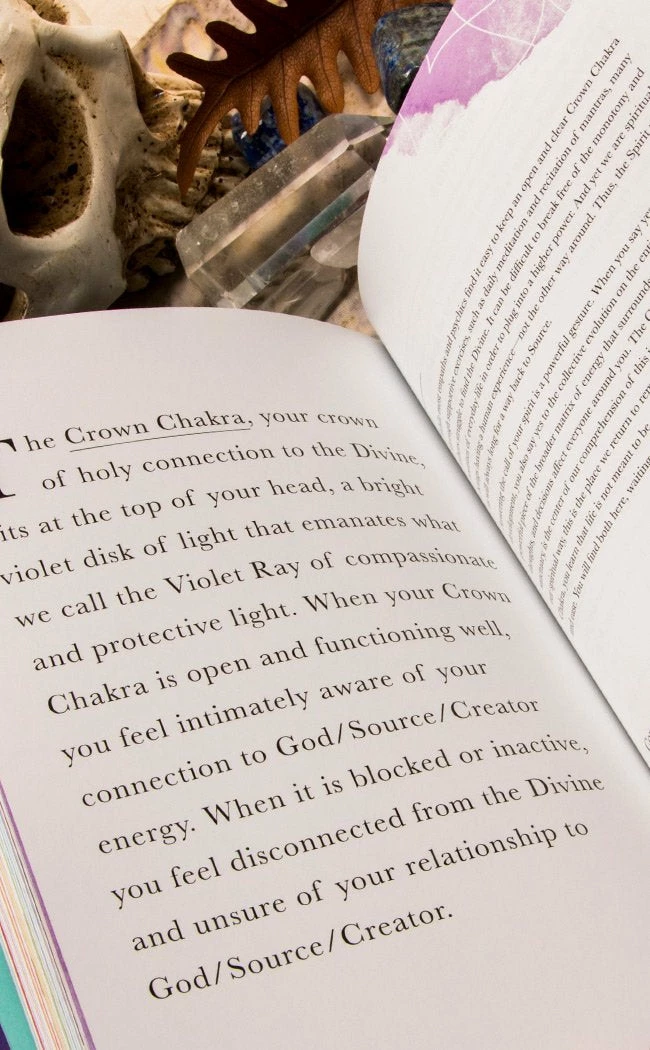 The Crown Chakra, your crown
of holy connection to the Divine,
its at the top of your head, a bright
violet disk of light that emanates what
we call the Violet Ray of compassionate
and protective light. When your Crown
Chakra is open and functioning well,
you feel intimately aware of your
connection to God/Source/Creator
energy. When it is blocked or inactive,
you feel disconnected from the Divine
and unsure of your relationship to
God/Source/Creator.
and psychics find it easy to keep an open and clear Crown Chakra
exercises, such as daily meditation and recitation of mantras, many
to find the Divine. It can be difficult to break free of the monotony and
of everyday life in order to plug into a higher power. And yet we are
having a human experience—not the other way around. Thus, the Spirit
long for a way back to Source.
the call of your spirit is a powerful gesture. When you say
you also say yes to the collective evolution on the
piece of the broader matrix of energy that surrounds
and decisions affect everyone around you. The
is the center of our comprehension of this
spiritual way, this is the place we return to
you learn that life is not meant to be
You will find both here, waiting